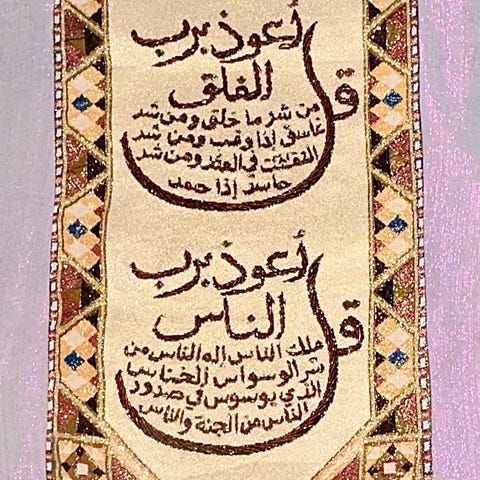 قل أعوذ برب
الفلق
من شر ما خلق ومن شر
غاسق إذا وقب ومن شر
النفثت في العقد ومن شر
حاسد إذا حسد
قل أعوذ برب
الناس
ملك الناس إله الناس من
شر الوسواس الخناس
الذي يوسوس في صدور
الناس من الجنة والناس